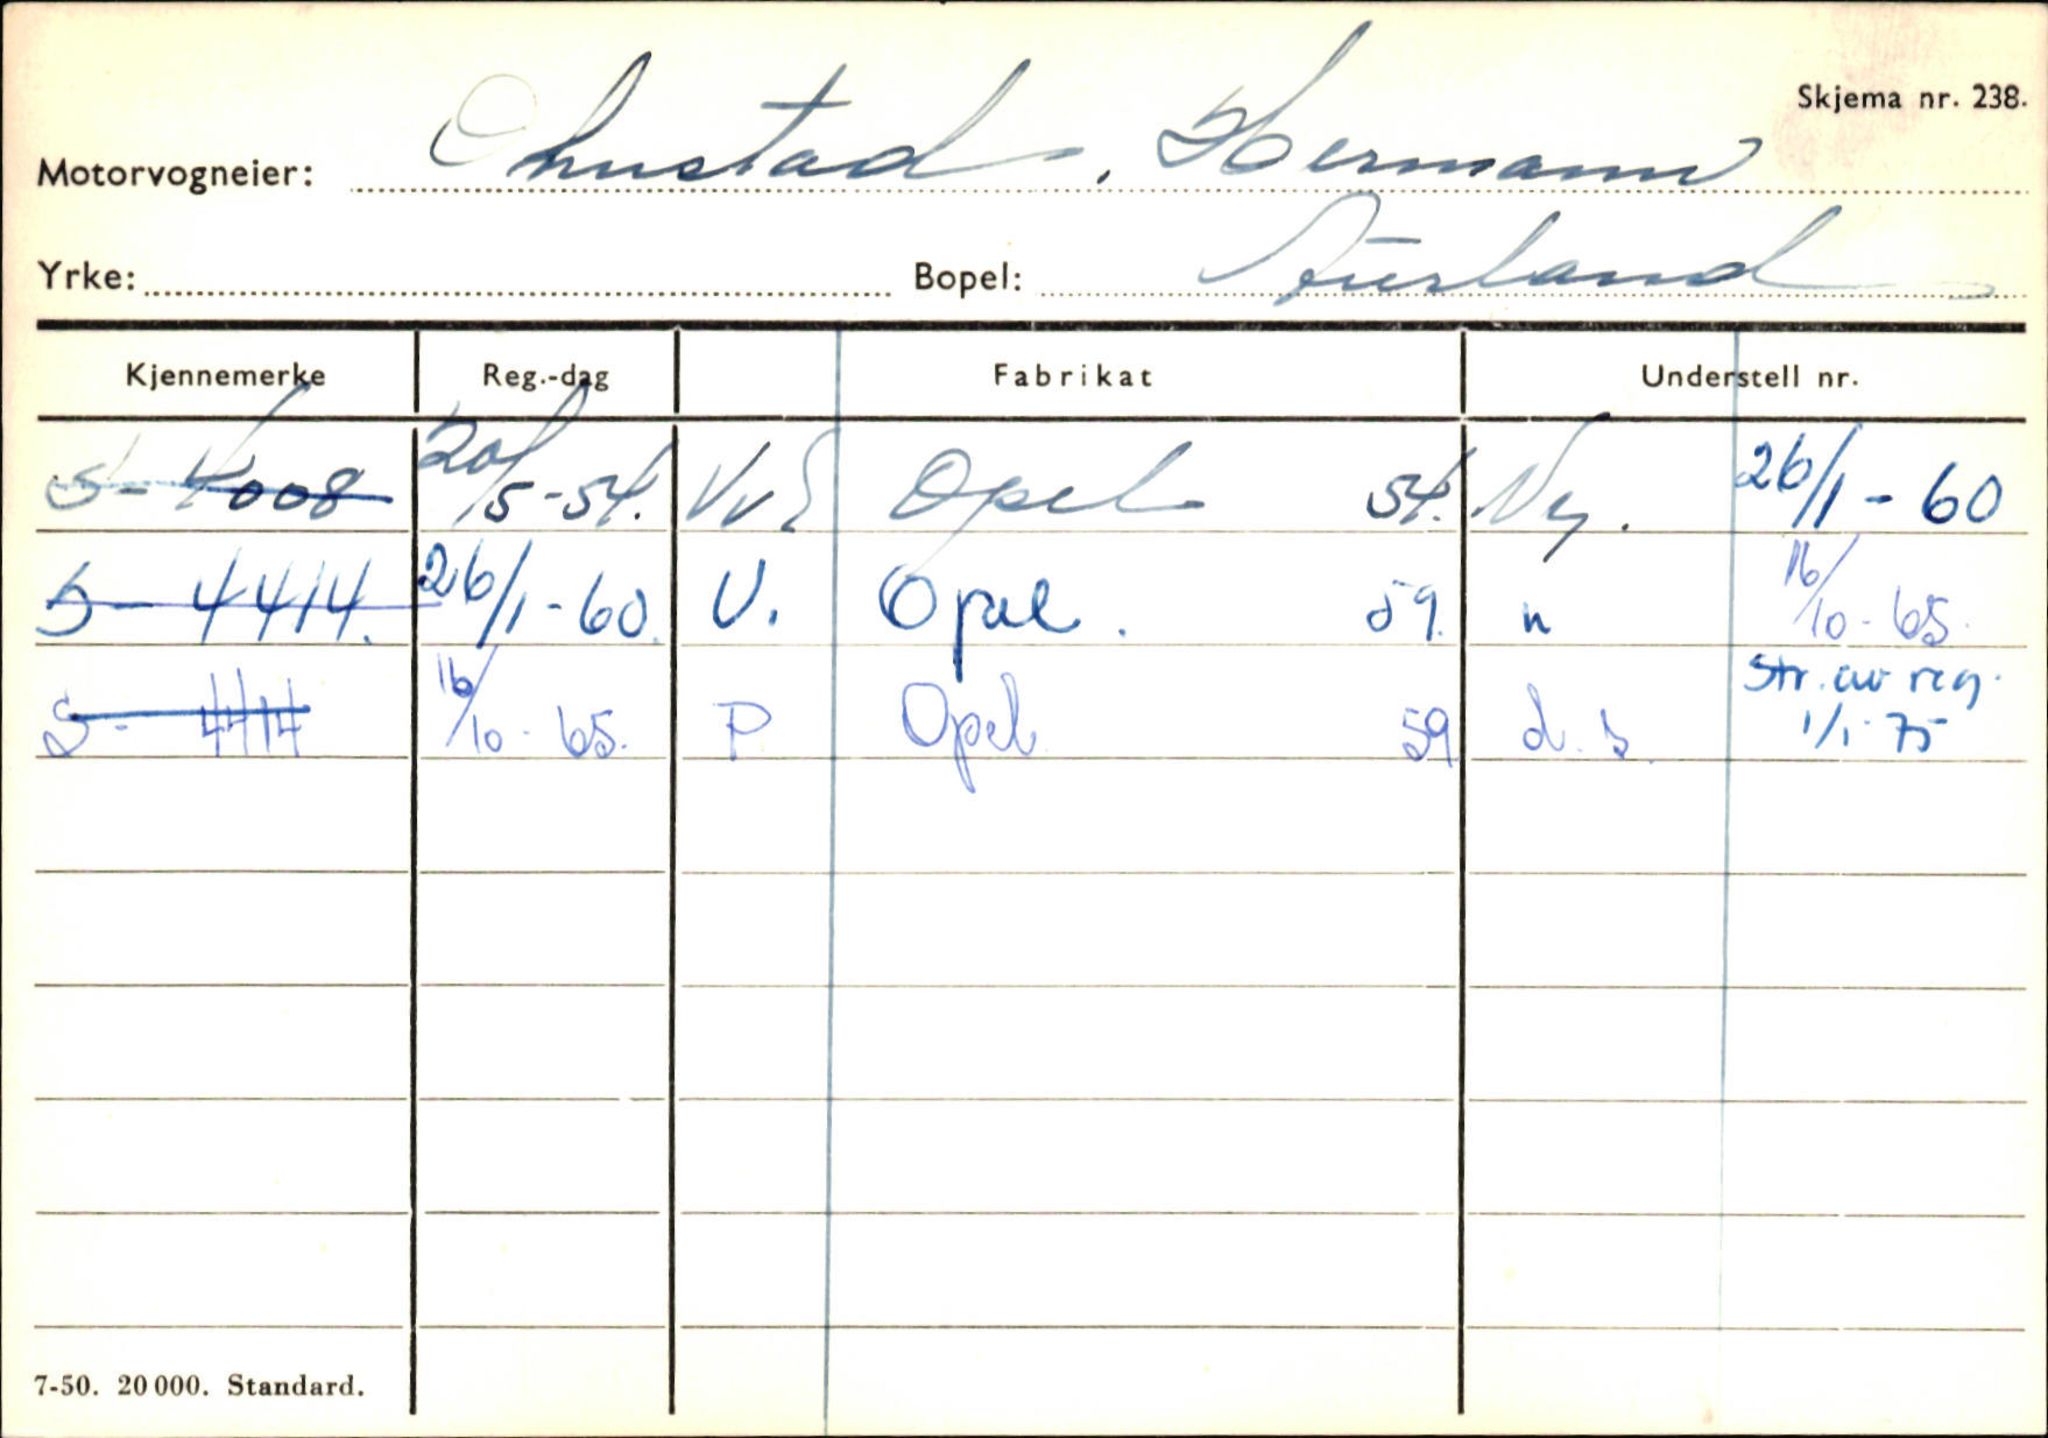 Skjema nr. 238.
Motorvogneier: Ohnstad, Hermann
Yrke: Bopel: Aurland
Kjennemerke Reg.-dag Fabrikat Understell nr.
S- 4008 20/5-54. Opel 54. Ny. 26/1-60
S- 4414. 26/1-60. V. Opel. 59. n 16/10-65.
S- 4414 16/10-65. P Opel 59 d.s. Str. av reg. 1/1-75
7-50. 20 000. Standard.